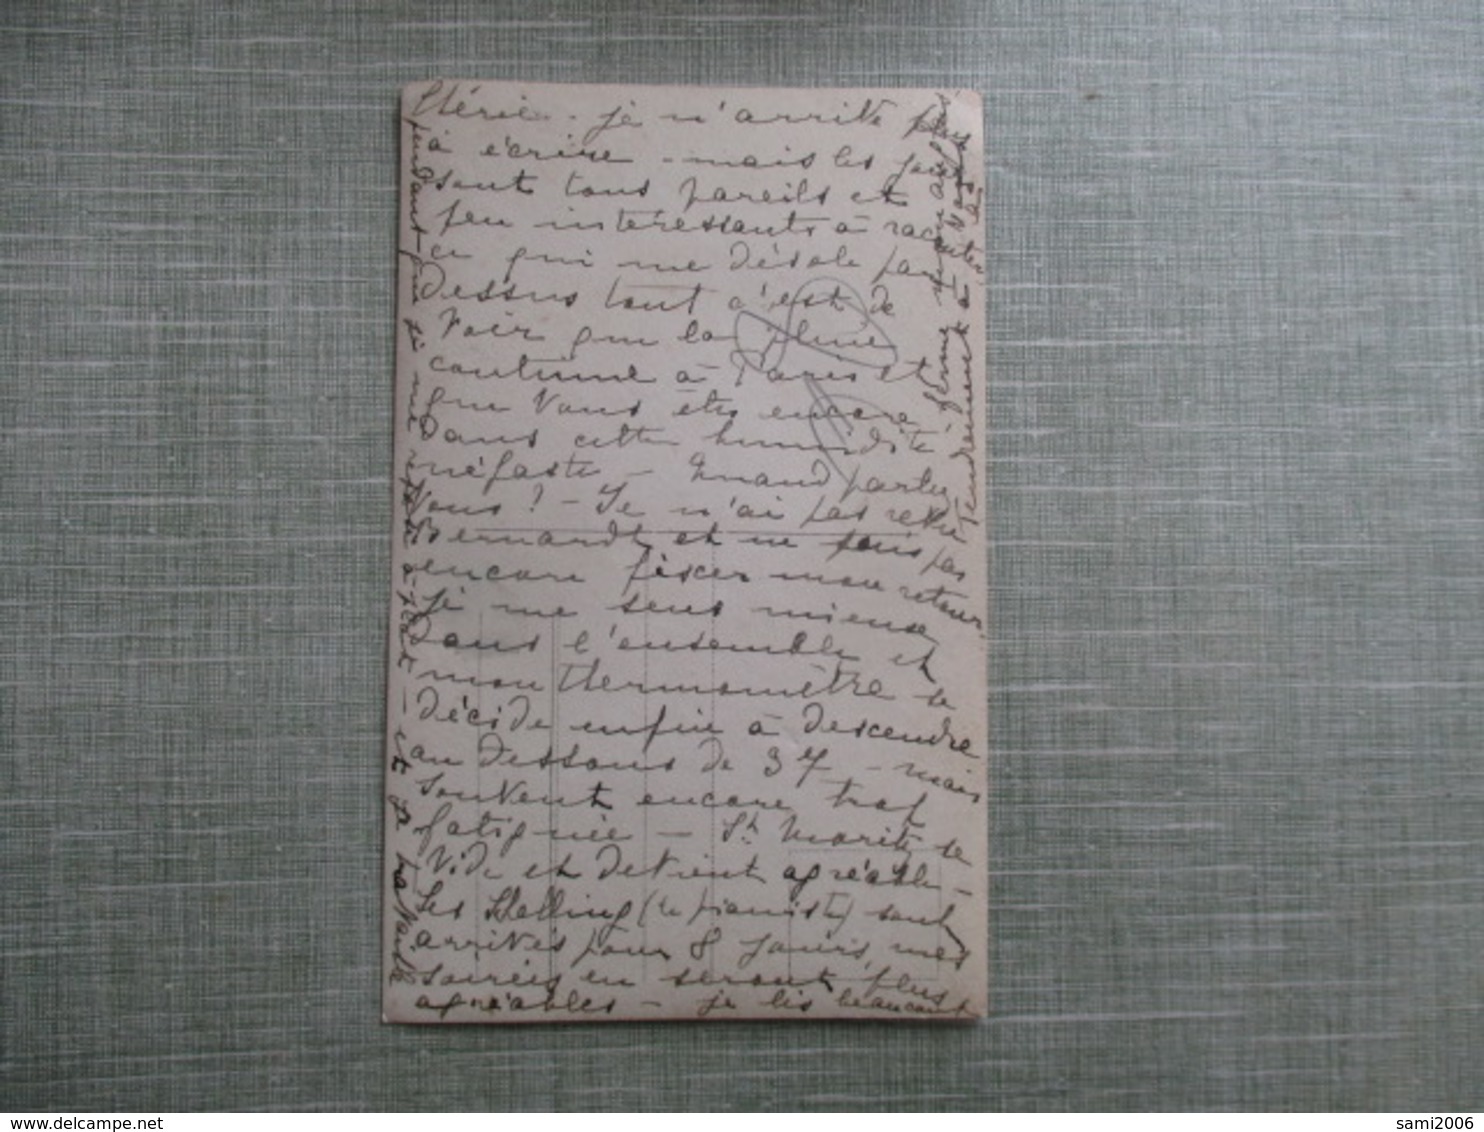 Chérie - je n'arrive plus
à écrire - mais les jours
sont tous pareils et
peu intéressants à raconter
ce qui me désole par
dessus tout c'est de
voir que la pluie
continue à Paris et
que vous êtes encore
dans cette humidité
néfaste - Quand partez
vous ? - Je n'ai pas revu
Bernardt et ne sais pas
encore fixer mon retour.
je me sens mieux
dans l'ensemble et
mon thermomètre se
décide enfin à descendre
au dessous de 37 - mais
souvent encore trop
fatiguée - St Moritz se
vide et devient agréable -
Les Schelling (le pianiste) sont
arrivés pour 8 jours, mes
soirées en seront plus
agréables - je lis beaucoup
pendant que je me repose à plat - et je travaille
Tendrement à vous
sami2006
www.delcampe.net